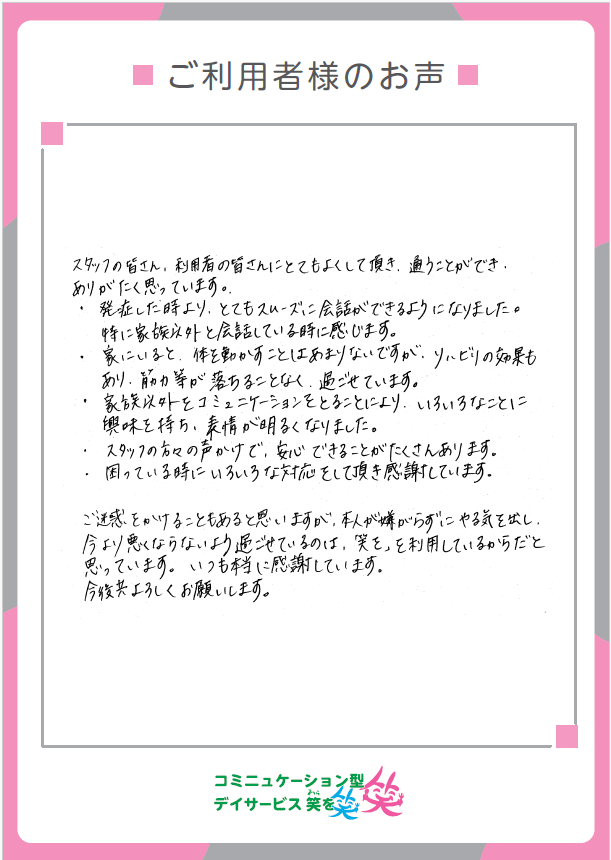 ご利用者様のお声
スタッフの皆さん、利用者の皆さんにとてもよくして頂き、通うことができ、
ありがたく思っています。
・ 発症した時より、とてもスムーズに会話ができるようになりました。
特に家族以外と会話している時に感じます。
・ 家にいると、体を動かすことはあまりないですが、リハビリの効果も
あり、筋力等が落ちることなく、過ごせています。
・ 家族以外とコミュニケーションをとることにより、いろいろなことに
興味を持ち、表情が明るくなりました。
・ スタッフの方々の声かけで、安心できることがたくさんあります。
・ 困っている時にいろいろな対応をして頂き感謝しています。
ご迷惑をかけることもあると思いますが、本人が嫌がらずにやる気を出し、
今より悪くならないよう過ごせているのは、「笑を」を利用しているからだと
思っています。いつも本当に感謝しています。
今後共よろしくお願いします。
コミニュケーション型
デイサービス 笑を
わら
笑
笑